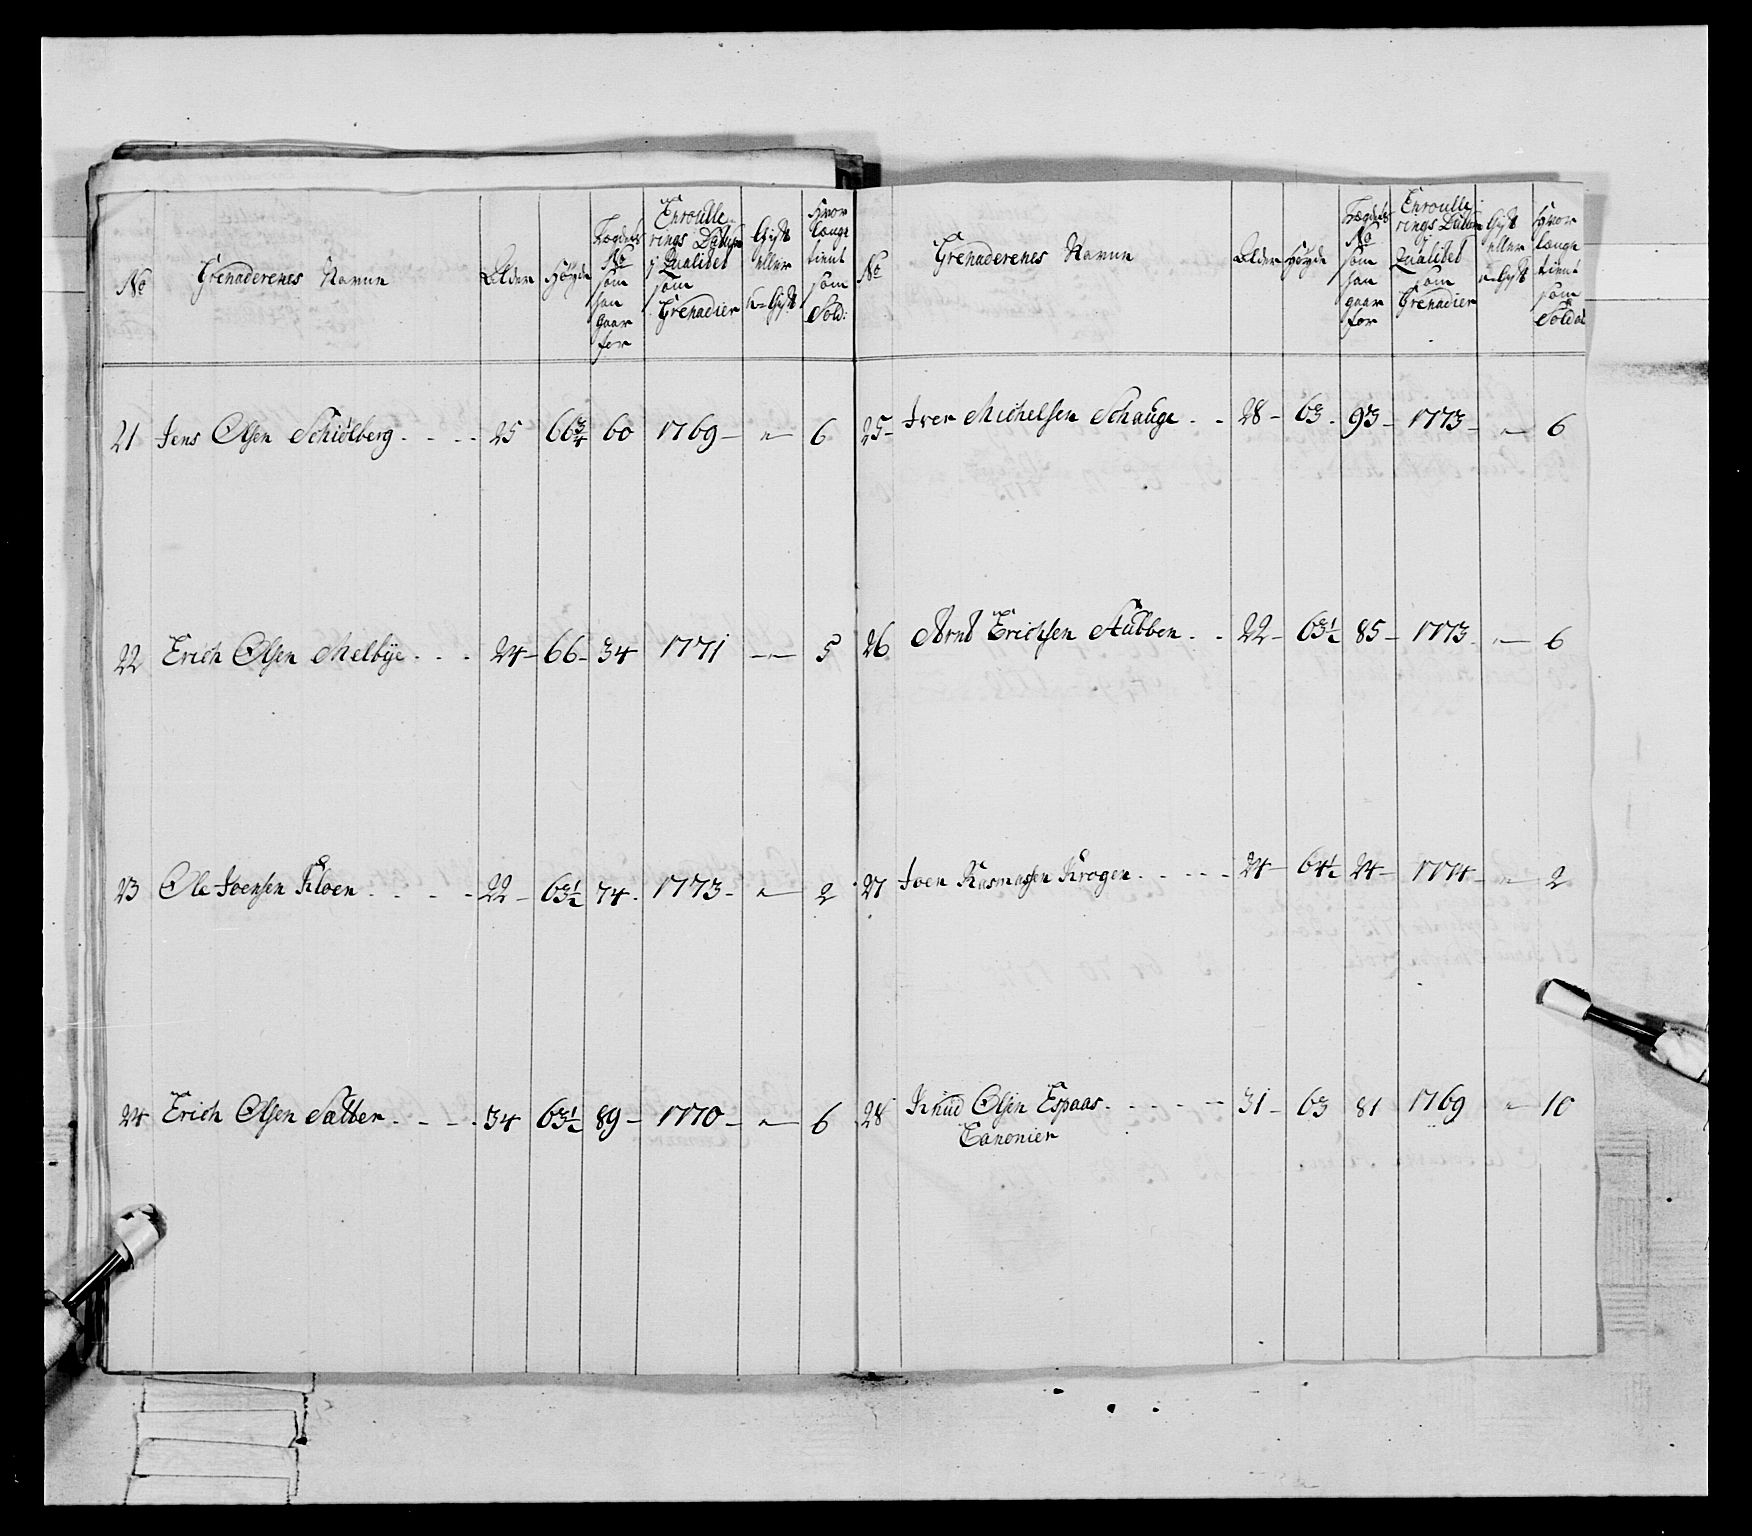 No
Grenaderenes Navne
Alder
Høyde
Lægdets
No
som
han
gaar
for
Enroulle
rings Datum
j Qualitet
som
Grenadier
Gift
eller
u-Gift
Hvor
Længe
tient
som
Sold:
21 Jens Olsen Schiølberg. - - - 25 66¾ 60 1769 - n - 6
22 Erich Olsen Melbye. - - 24 - 66 - 34 1771 - n - 5
23 Ole Joensen Kloen - - - - 22 - 63½ 74. 1773 - n - 2
24 Erich Olsen Sætter. - - - 34 63½ 89 - 1770 - n - 6
No
Grenaderenes Navne
Alder
Høyde
Lægdets
No
som
han
gaar
for
Enroulle
rings Datum
Qualitet
som
Grenadier
Gift
eller
u-Gift
Hvor
Længe
tient
som
Soldat
25 - Iver Michelsen Schauge. - 28 - 63. 93 - 1773 - n - 6
26 Arnt Erichsen Stubben. - 22 - 63½ 85 - 1773. n - 6
27 Joen Rasmussen Krogen. - - - - 24 - 64½ 24 - 1774 - n - 2
28 Knud Olsen Espaas. - - - - 31 - 63 81 1769 n - 10
Canonier